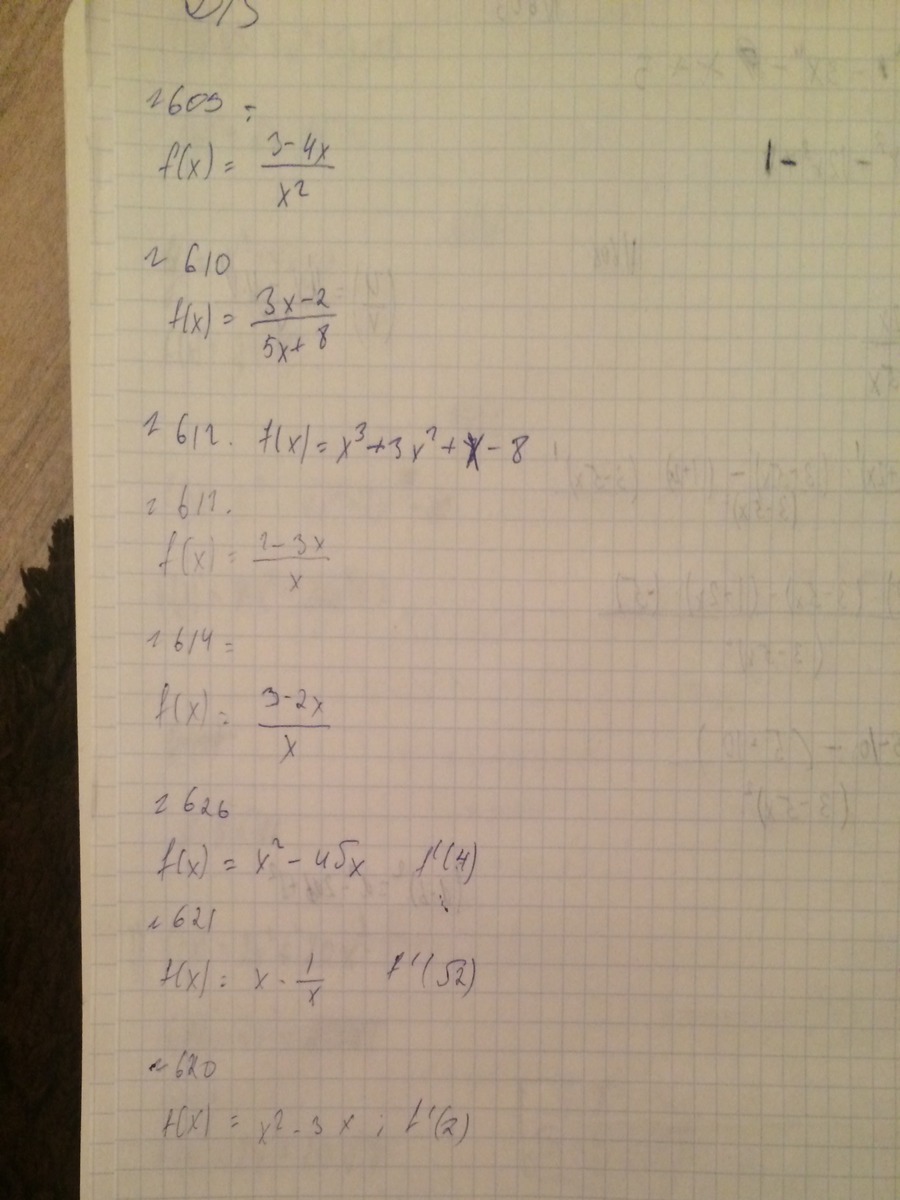 Д/З
№609:
f(x) = (3-4x)/x²
№ 610
f(x) = (3x-2)/(5x+8)
№ 612. f(x) = x³+3x²+x-8
№ 611.
f(x) = (2-3x)/x
№ 614 =
f(x) = (3-2x)/x
№ 626
f(x) = x² - 4√x f'(4)
№ 621
f(x) = x - 1/x f'(√2)
№ 620
f(x) = x² - 3x ; f'(2)